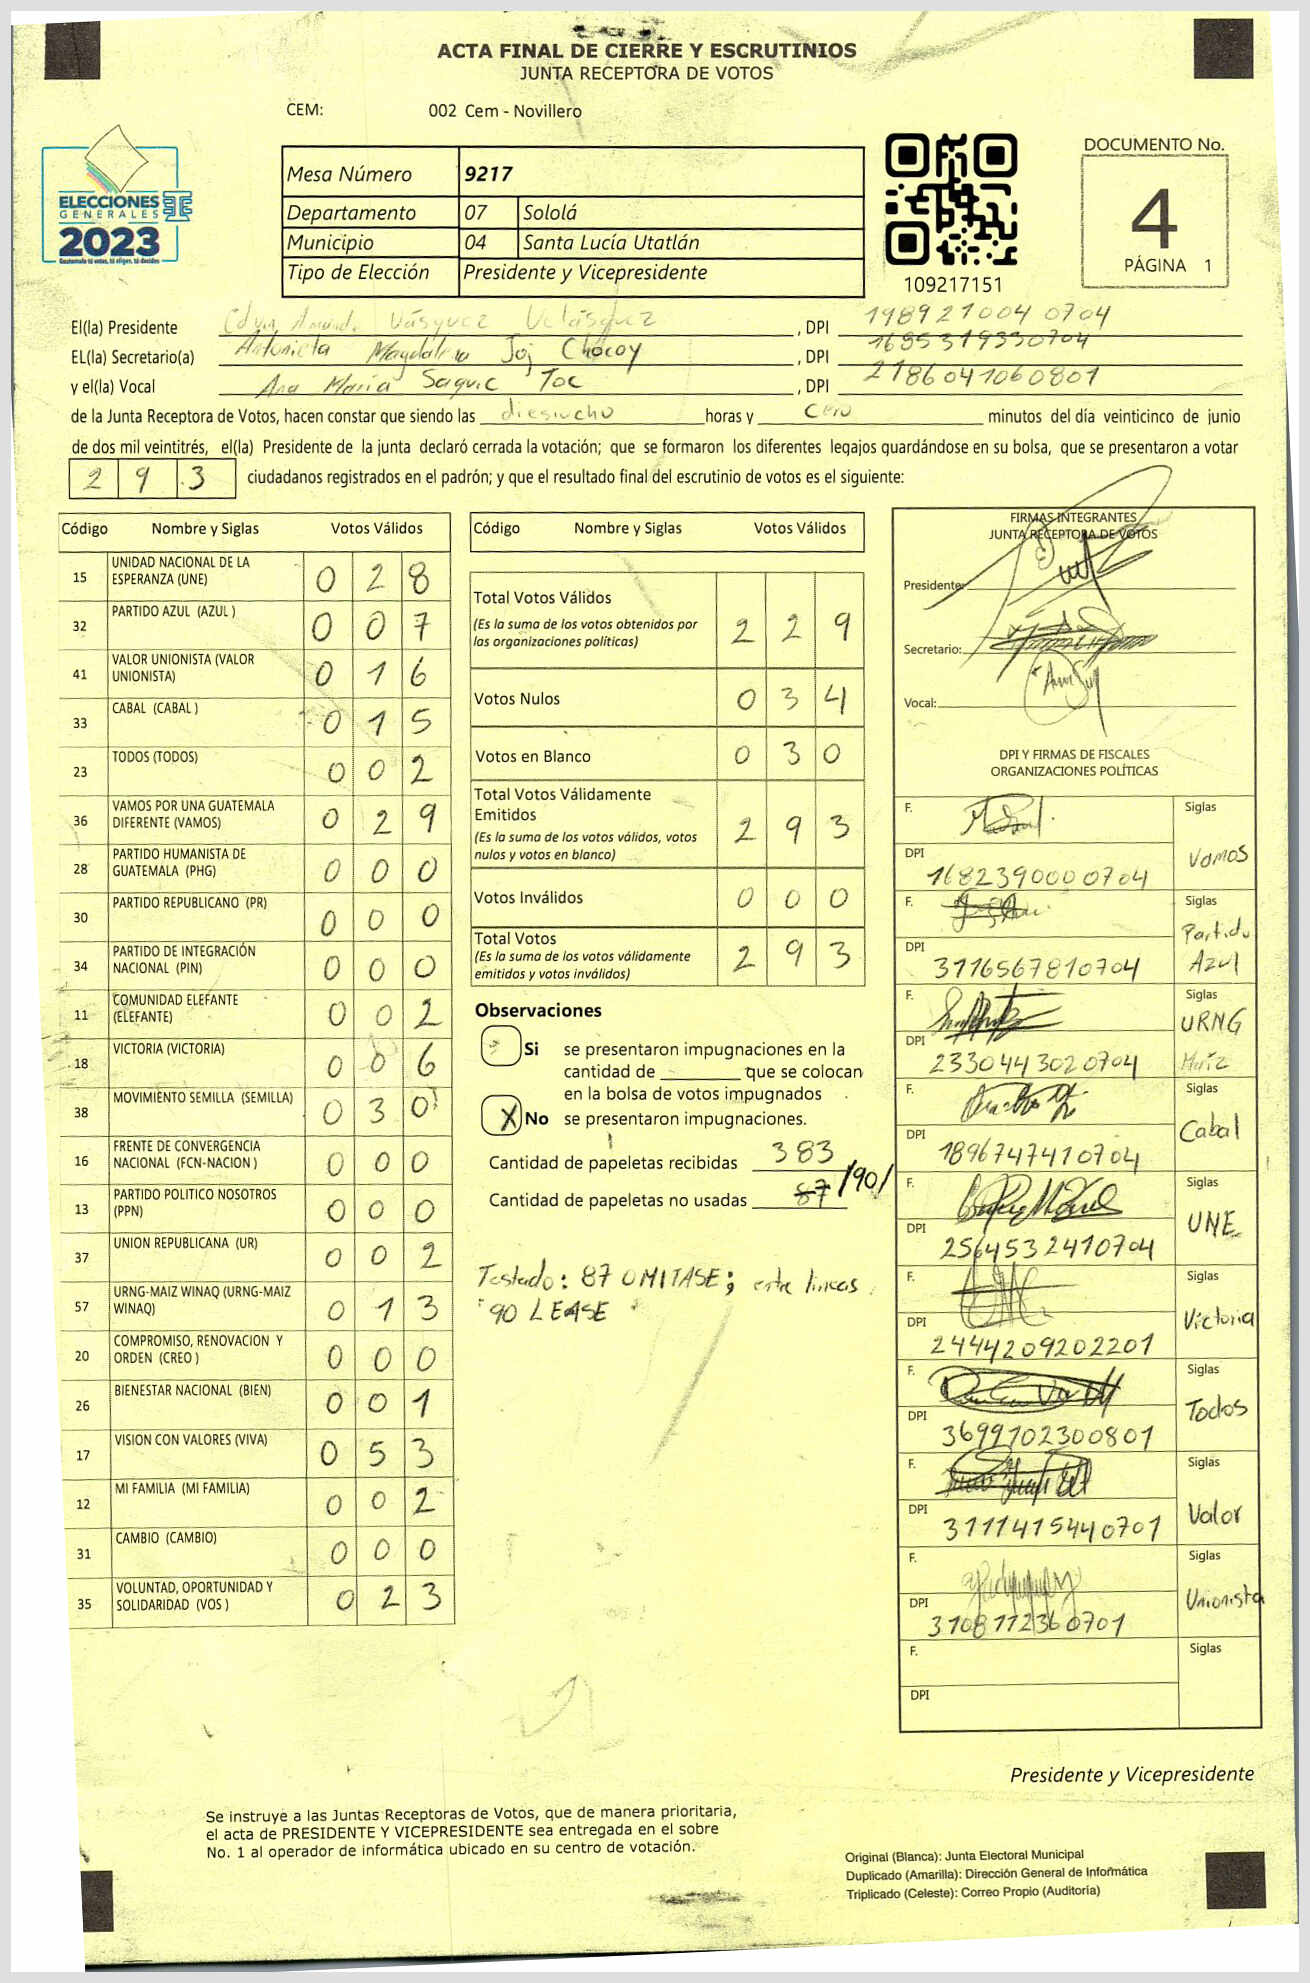 ACTA FINAL DE CIERRE Y ESCRUTINIOS
JUNTA RECEPTORA DE VOTOS
CEM: 002 Cem - Novillero
ELECCIONES
GENERALES
2023
Guatemala tú votas, tú eliges, tú decides
Mesa Número 9217
Departamento 07 Sololá
Municipio 04 Santa Lucía Utatlán
Tipo de Elección Presidente y Vicepresidente
109217151
DOCUMENTO No.
4
PÁGINA 1
El(la) Presidente Vásquez Velásquez , DPI 198921004 0704
EL(la) Secretario(a) Antonieta Magdalena Joj Chocoy , DPI 1685319330704
y el(la) Vocal Ana María Saquic Toc , DPI 2186041060801
de la Junta Receptora de Votos, hacen constar que siendo las diesiocho horas y cero minutos del día veinticinco de junio
de dos mil veintitrés, el(la) Presidente de la junta declaró cerrada la votación; que se formaron los diferentes legajos guardándose en su bolsa, que se presentaron a votar
2 9 3 ciudadanos registrados en el padrón; y que el resultado final del escrutinio de votos es el siguiente:
Código Nombre y Siglas Votos Válidos
15 UNIDAD NACIONAL DE LA ESPERANZA (UNE) 0 2 8
32 PARTIDO AZUL (AZUL ) 0 0 7
41 VALOR UNIONISTA (VALOR UNIONISTA) 0 1 6
33 CABAL (CABAL ) 0 1 5
23 TODOS (TODOS) 0 0 2
36 VAMOS POR UNA GUATEMALA DIFERENTE (VAMOS) 0 2 9
28 PARTIDO HUMANISTA DE GUATEMALA (PHG) 0 0 0
30 PARTIDO REPUBLICANO (PR) 0 0 0
34 PARTIDO DE INTEGRACIÓN NACIONAL (PIN) 0 0 0
11 COMUNIDAD ELEFANTE (ELEFANTE) 0 0 2
18 VICTORIA (VICTORIA) 0 0 6
38 MOVIMIENTO SEMILLA (SEMILLA) 0 3 0
16 FRENTE DE CONVERGENCIA NACIONAL (FCN-NACION ) 0 0 0
13 PARTIDO POLITICO NOSOTROS (PPN) 0 0 0
37 UNION REPUBLICANA (UR) 0 0 2
57 URNG-MAIZ WINAQ (URNG-MAIZ WINAQ) 0 1 3
20 COMPROMISO, RENOVACION Y ORDEN (CREO ) 0 0 0
26 BIENESTAR NACIONAL (BIEN) 0 0 1
17 VISION CON VALORES (VIVA) 0 5 3
12 MI FAMILIA (MI FAMILIA) 0 0 2
31 CAMBIO (CAMBIO) 0 0 0
35 VOLUNTAD, OPORTUNIDAD Y SOLIDARIDAD (VOS ) 0 2 3
Código Nombre y Siglas Votos Válidos
Total Votos Válidos 2 2 9
(Es la suma de los votos obtenidos por
las organizaciones políticas)
Votos Nulos 0 3 4
Votos en Blanco 0 3 0
Total Votos Válidamente
Emitidos 2 9 3
(Es la suma de los votos válidos, votos
nulos y votos en blanco)
Votos Inválidos 0 0 0
Total Votos 2 9 3
(Es la suma de los votos válidamente
emitidos y votos inválidos)
Observaciones
Si se presentaron impugnaciones en la
cantidad de ________ que se colocan
en la bolsa de votos impugnados
X No se presentaron impugnaciones.
Cantidad de papeletas recibidas 383
Cantidad de papeletas no usadas 87 /90/
Testado: 87 OMITASE; entre lineas
90 LEASE
FIRMAS INTEGRANTES
JUNTA RECEPTORA DE VOTOS
Presidente:
Secretario:
Vocal:
DPI Y FIRMAS DE FISCALES
ORGANIZACIONES POLÍTICAS
F. Siglas
DPI 1682390000704 Vamos
F. Siglas
DPI 3116567810704 Partido Azul
F. Siglas
DPI 2330443020704 URNG Maiz
F. Siglas
DPI 1896747410704 Cabal
F. Siglas
DPI 2564532410704 UNE
F. Siglas
DPI 2444209202201 Victoria
F. Siglas
DPI 3699102300801 Todos
F. Siglas
DPI 3111415440701 Valor
F. Siglas
DPI 3108112360701 Unionista
F. Siglas
DPI
Presidente y Vicepresidente
Se instruye a las Juntas Receptoras de Votos, que de manera prioritaria,
el acta de PRESIDENTE Y VICEPRESIDENTE sea entregada en el sobre
No. 1 al operador de informática ubicado en su centro de votación.
Original (Blanca): Junta Electoral Municipal
Duplicado (Amarilla): Dirección General de Informática
Triplicado (Celeste): Correo Propio (Auditoría)